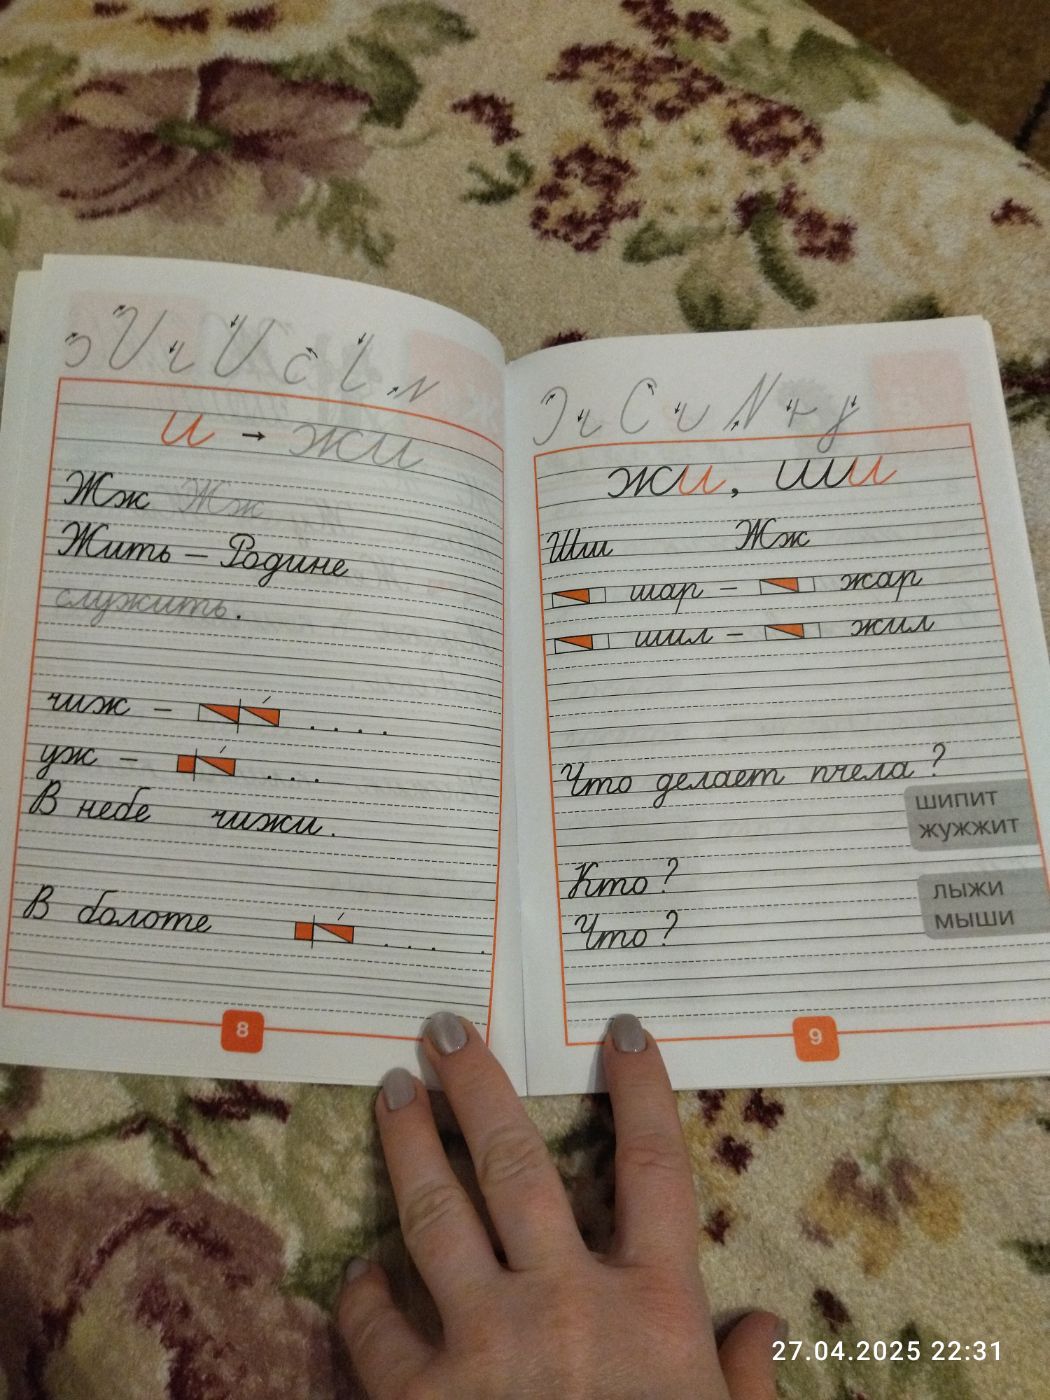 и → жи
Жж Жж
Жить – Родине
служить.
чиж – . . . .
уж – . . .
В небе чижи.
В болоте . . . .
8
жи, ши
Шш Жж
шар – жар
шил – жил
Что делает пчела?
шипит
жужжит
Кто?
Что?
лыжи
мыши
9
27.04.2025 22:31